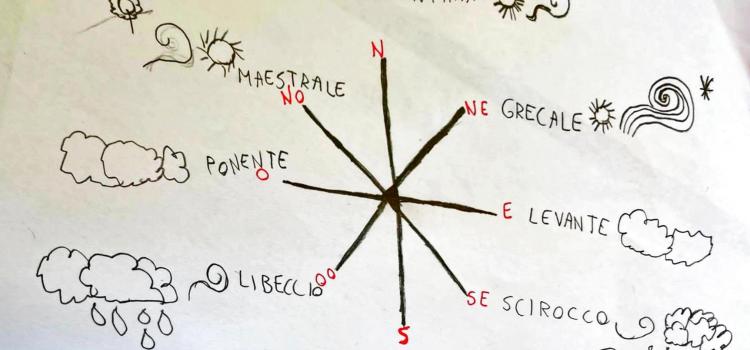 N
MAESTRALE
NO
NE GRECALE
PONENTE
O
E LEVANTE
LIBECCIO
OO
SE SCIROCCO
S